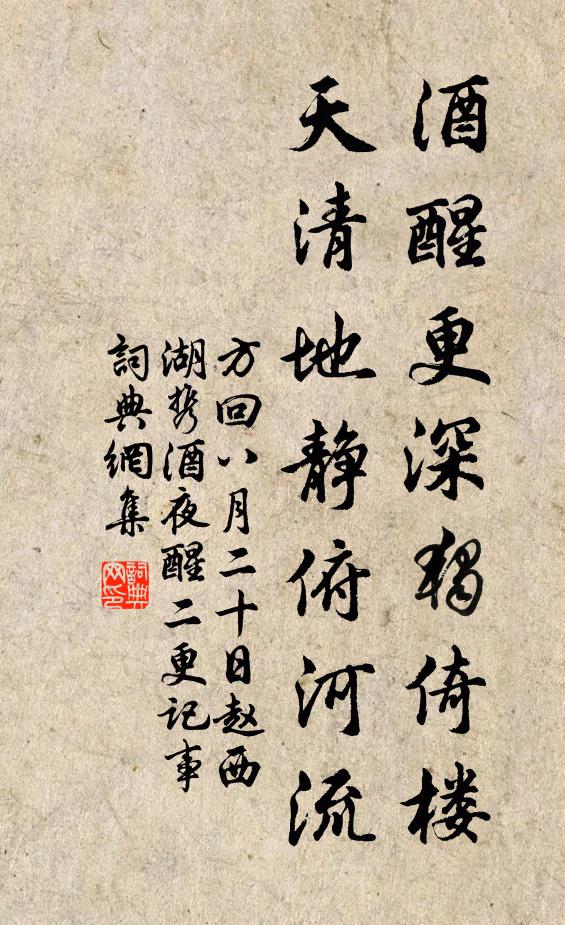 酒醒更深独倚楼
天清地静俯河流
方回八月二十日赵西
湖携酒夜醒二更记事
詞典網集
詞典
网印